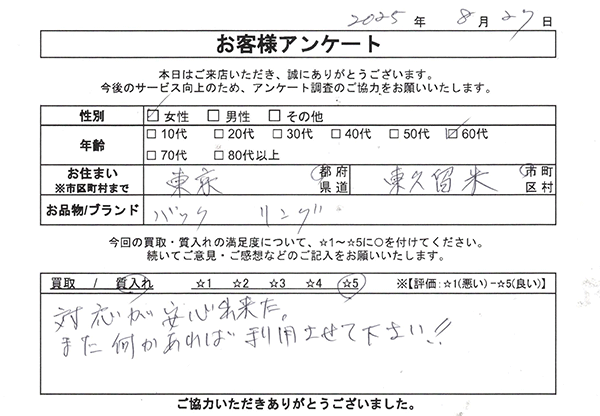 2025年 8月27日
お客様アンケート
本日はご来店いただき、誠にありがとうございます。
今後のサービス向上のため、アンケート調査のご協力をお願いいたします。
性別 ☑女性 □男性 □その他
年齢 □10代 □20代 □30代 □40代 □50代 ☑60代
□70代 □80代以上
お住まい
※市区町村まで 東京 都府県道 東久留米 市町区村
お品物/ブランド バック リング
今回の買取・質入れの満足度について、☆1~☆5に○を付けてください。
続いてご意見・ご感想などのご記入をお願いいたします。
買取 / 質入れ ☆1 ☆2 ☆3 ☆4 ☆5 ※【評価:☆1(悪い)-☆5(良い)】
対応が安心出来た。
また何かあれば利用させて下さい!!
ご協力いただきありがとうございました。